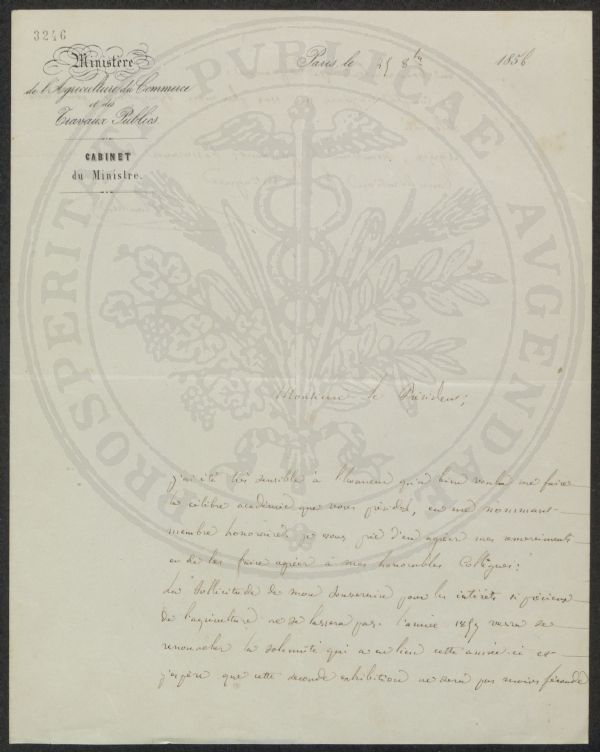 3246
Ministère
de l'Agriculture du Commerce
et des
Travaux Publics
CABINET
du Ministre.
Paris, le 8bre 1856
PROSPERITATI PVBLICAE AVGENDAE
Monsieur le Président,
j'ai été très sensible à l'honneur qu'a bien voulu me faire
la célèbre académie que vous présidez, en me nommant
membre honoraire. je vous prie d'en agréer mes remerciments
et de les faire agréer à mes honorables Collègues.
La Sollicitude de mon Souverain pour les intérêts si précieux
de l'agriculture ne se lassera pas. l'année 1857 verra se
renouveler la solennité qui a eu lieu cette année-ci et
j'espère que cette seconde exhibition ne sera pas moins féconde